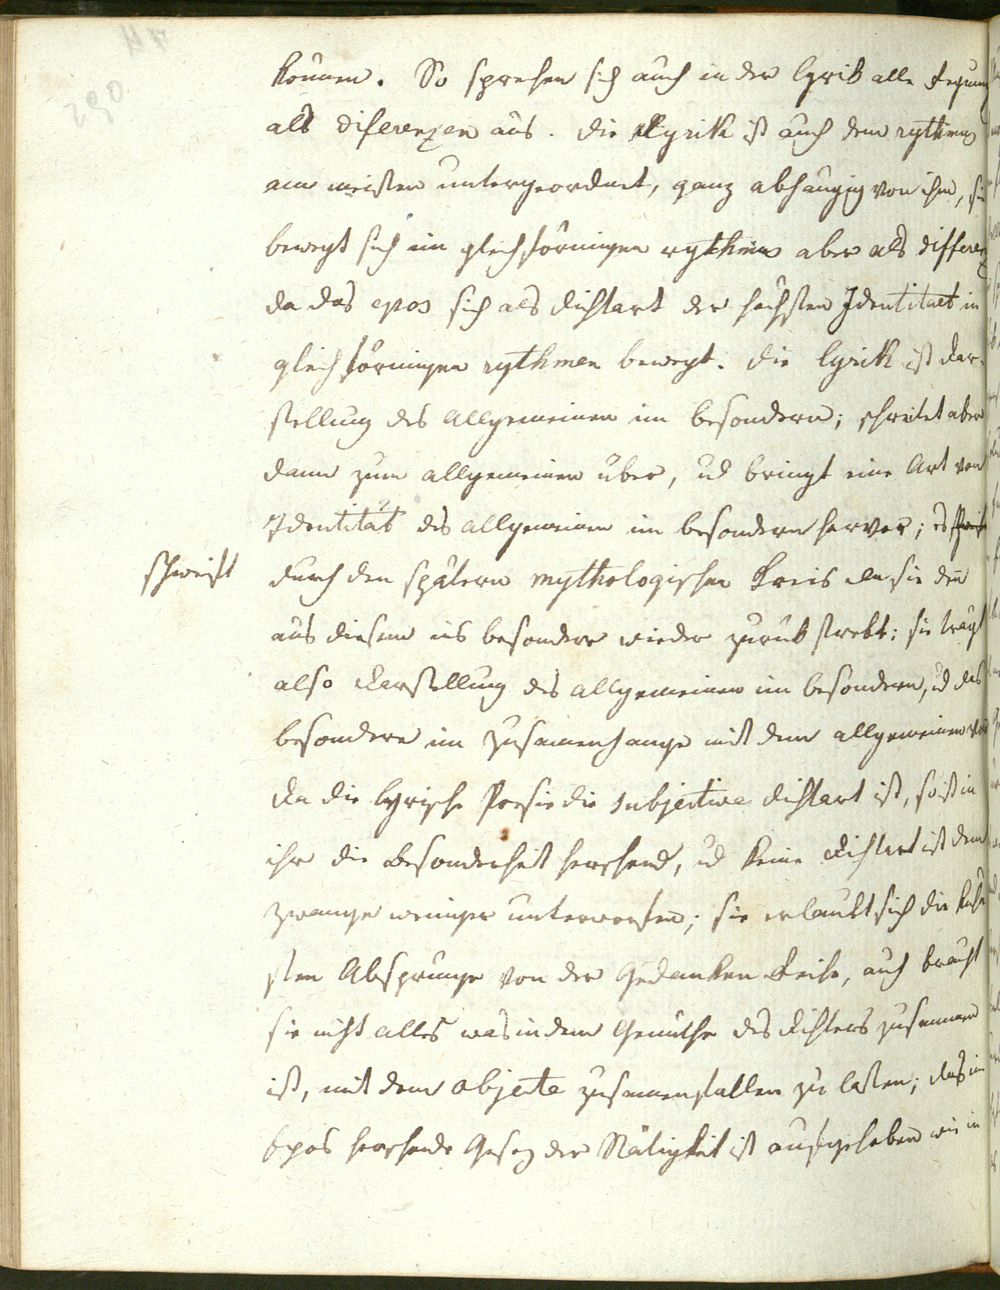 können. So sprechen sich auch in der lyrik alle
als diferenzen aus. die Lyrik ist auch dem rythmus
am meisten untergeordnet, ganz abhängig von ihm, sie
bewegt sich im gleichförmigen rythmus aber als differenz
da das epos sich als dichtart der höchsten Identitaet in
gleichförmigen rythmen bewegt. die lyrik ist dar-
stellung des allgemeinen im besondern; schreitet aber
dann zum allgemeinen über, ud bringt eine Art von
Identität des allgemeinen im besondern hervor; es
schweift
durch den spätern mythologischen kreis da sie den
aus diesem ins besondere wieder zurük strebt; sie trägt
also darstellung des allgemeinen im besondern, ud das
besondere im zusamenhange mit dem allgemeinen vor
da die lyrische Poesie die subjective dichtart ist, so ist in
ihr die besonderheit herschend, ud keine dichtart ist dem
zwange weniger unterworfen; sie erlaubt sich die kühn
sten Absprünge von der Gedanken Reihe, auch braucht
sie nicht alles was in dem Gemüthe des dichters zusammen
ist, mit dem objecte zusamenfallen zu lassen; das im
Epos herschende Gesez der Stätigkeit ist aufgehoben wie in